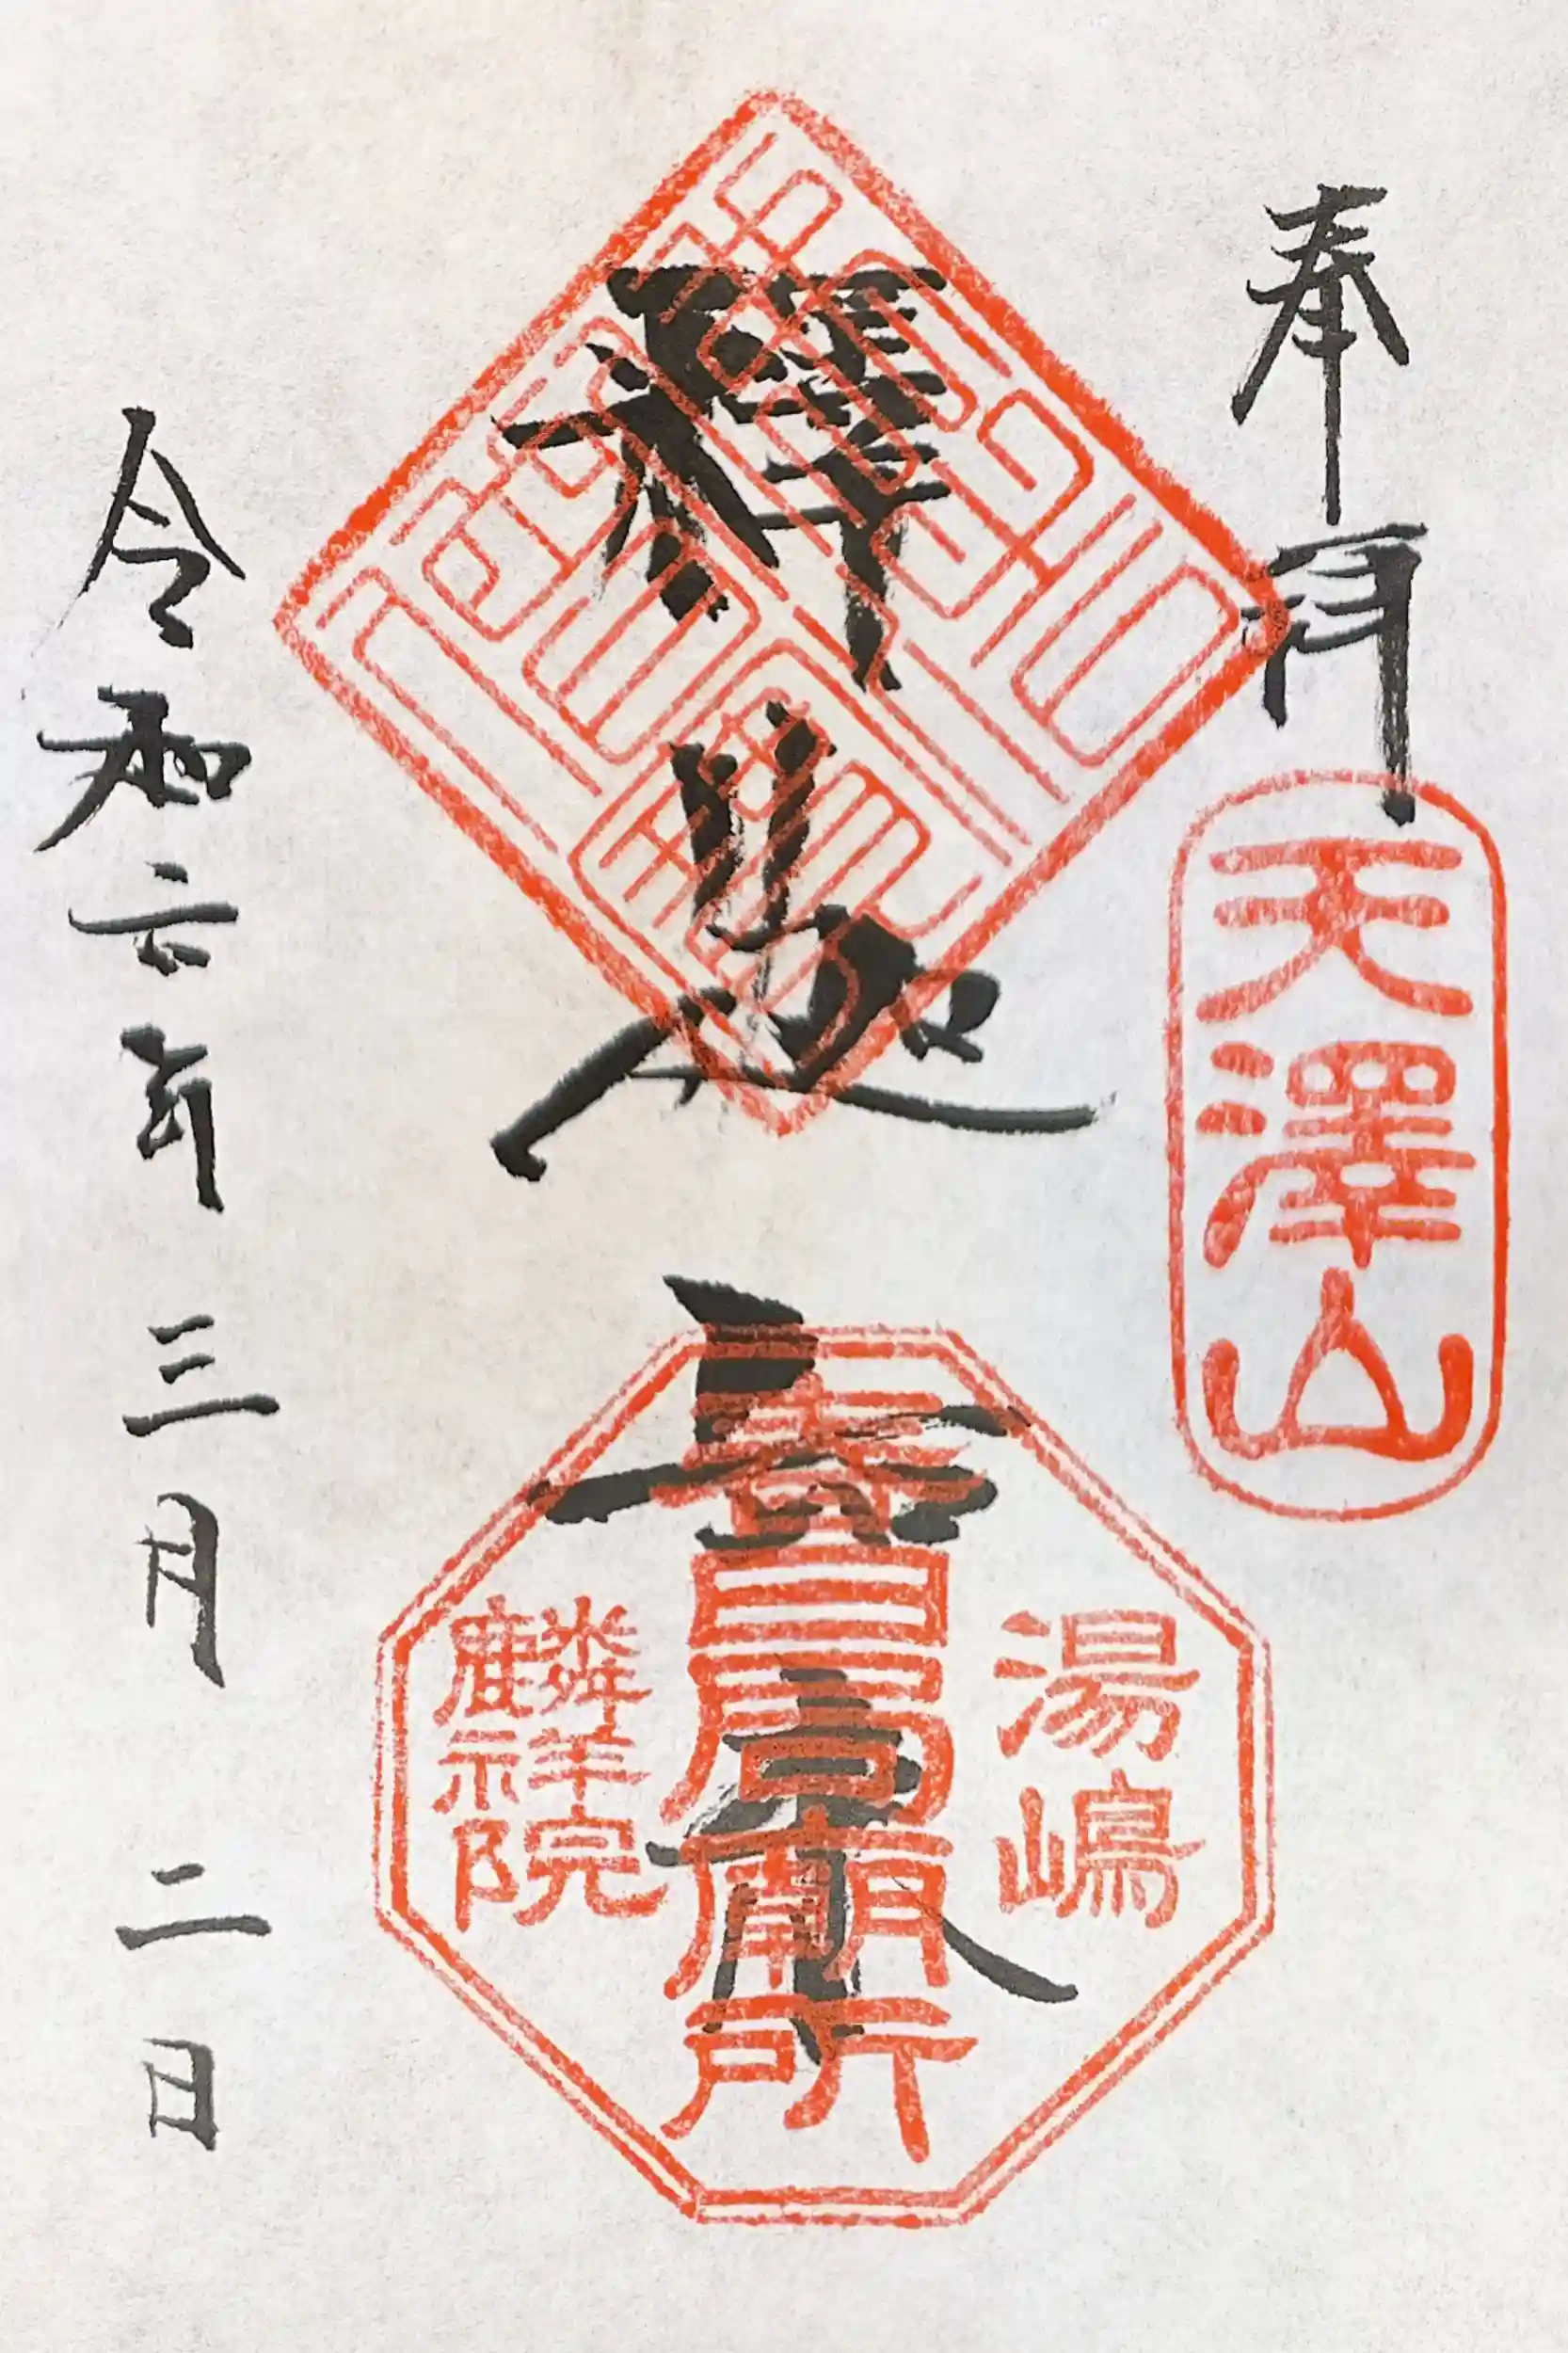 奉拝
天澤山
釋迦
如来
湯嶋
春日局廟所
麟祥院
令和六年
三月
二日